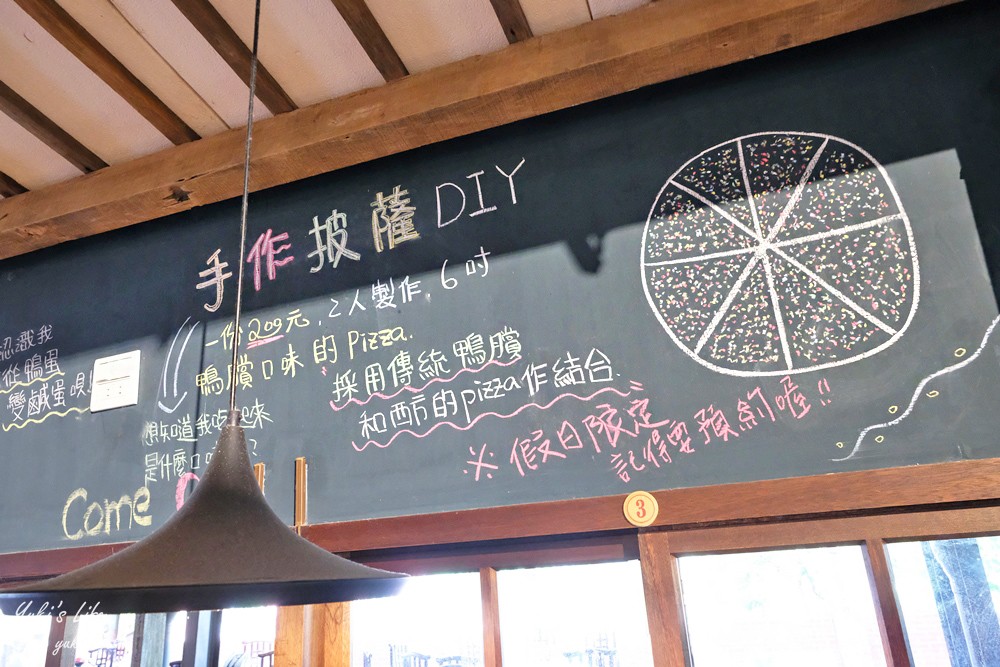 手作披薩DIY
一份200元, 2人製作, 6吋
鴨賞口味的Pizza.
採用傳統鴨賞
和西方的pizza作結合.
※假日限定
記得要預約喔!!
認識我
從鴨蛋
變鹹蛋唄!
想知道我吃起來
是什麼口味?
Come
3
Yuki's Life